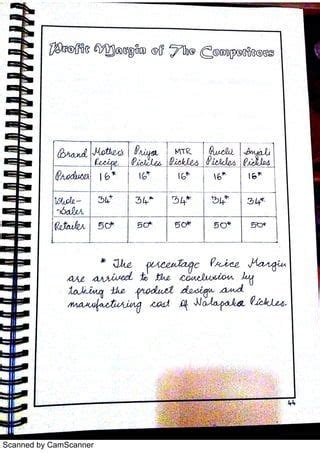 Profit Margin of The Competitors
Brand Mother's Recipe Priya Pickles MTR Pickles Ruchi Pickles Anjali Pickles
Producer 16* 16* 16* 16* 16*
Whole-saler 34* 34* 34* 34* 34*
Retailer 50* 50* 50* 50* 50*
* The percentage Price Margin
are arrived to the conclusion by
taking the product design and
manufacturing cost of Nalapaka Pickles.
44
Scanned by CamScanner